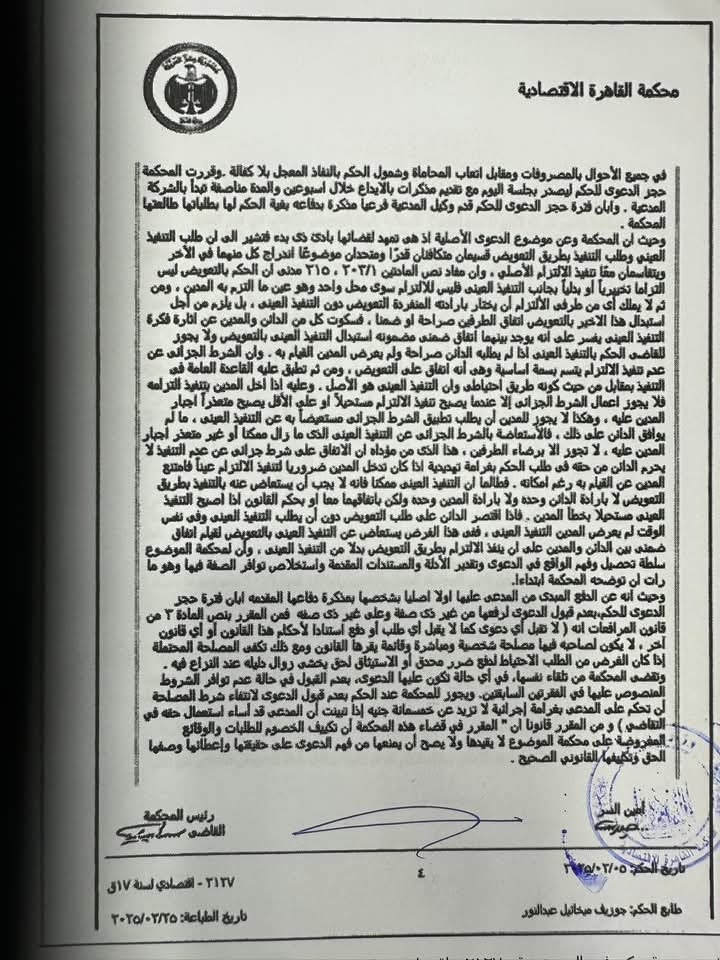 محكمة القاهرة الاقتصادية
في جميع الأحوال بالمصروفات ومقابل اتعاب المحاماة وشمول الحكم بالنفاذ المعجل بلا كفالة .وقررت المحكمة
حجز الدعوى للحكم ليصدر بجلسة اليوم مع تقديم مذكرات بالايداع خلال اسبوعين والمدة مناصفة تبدأ بالشركة
المدعية . وابان فترة حجز الدعوى للحكم قدم وكيل المدعية فرعيا مذكرة بدفاعه بغية الحكم لها بطلباتها طالعتها
المحكمة .
وحيث ان المحكمة وعن موضوع الدعوى الأصلية اذ هى تمهد لقضائها بادئ ذى بدء فتشير الى ان طلب التنفيذ
العيني وطلب التنفيذ بطريق التعويض قسيمان متكافئان قدرًا ومتحدان موضوعًا اندراج كل منهما في الأخر
ويتقاسمان معًا تنفيذ الإلتزام الأصلي ، وان مفاد نص المادتين ٢٠٣/١ ، ٢١٥ مدنى ان الحكم بالتعويض ليس
التزاما تخييرياً أو بدلياً بجانب التنفيذ العينى فليس للالتزام سوى محل واحد وهو عين ما التزم به المدين ، ومن
ثم لا يملك أى من طرفى الألتزام أن يختار بارادته المنفردة التعويض دون التنفيذ العينى ، بل يلزم من أجل
استبدال هذا الاخير بالتعويض اتفاق الطرفين صراحة او ضمنا ، فسكوت كل من الدائن والمدين عن اثارة فكرة
التنفيذ العينى يفسر على انه يوجد بينهما أتفاق ضمنى مضمونه استبدال التنفيذ العينى بالتعويض ولا يجوز
للقاضي الحكم بالتنفيذ العينى اذا لم يطلبه الدائن صراحة ولم يعرض المدين القيام به . وان الشرط الجزائى عن
عدم تنفيذ الالتزام يتسم بسمة اساسية وهى أنه اتفاق على التعويض ، ومن ثم تطبق عليه القاعدة العامة فى
التنفيذ بمقابل من حيث كونه طريق احتياطى وان التنفيذ العينى هو الأصل . وعليه اذا اخل المدين بتنفيذ التزامه
فلا يجوز اعمال الشرط الجزائى إلا عندما يصبح تنفيذ الالتزام مستحيلاً او على الأقل يصبح متعذراً اجبار
المدين عليه ، وهكذا لا يجوز للمدين أن يطلب تطبيق الشرط الجزائى مستعيضاً به عن التنفيذ العينى ، ما لم
يوافق الدائن على ذلك ، فالأستعاضة بالشرط الجزائى عن التنفيذ العينى الذى ما زال ممكنا أو غير متعذر اجبار
المدين عليه ، لا تجوز الا برضاء الطرفين ، هذا الذى من مؤداه ان الاتفاق على شرط جزائى عن عدم التنفيذ لا
يحرم الدائن من حقه فى طلب الحكم بغرامة تهديدية اذا كان تدخل المدين ضروريا لتنفيذ الالتزام عيناً فامتنع
المدين عن القيام به رغم امكانه . فطالما ان التنفيذ العينى ممكنا فانه لا يجب أن يستعاض عنه بالتنفيذ بطريق
التعويض لا بارادة الدائن وحده ولا بارادة المدين وحده ولكن باتفاقهما معا او بحكم القانون اذا اصبح التنفيذ
العينى مستحيلا بخطأ المدين . فاذا اقتصر الدائن على طلب التعويض دون أن يطلب التنفيذ العينى وفى نفس
الوقت لم يعرض المدين التنفيذ العينى ، ففى هذا الفرض يستعاض عن التنفيذ العينى بالتعويض لقيام اتفاق
ضمنى بين الدائن والمدين على ان ينفذ الالتزام بطريق التعويض بدلا من التنفيذ العينى ، وأن لمحكمة الموضوع
سلطة تحصيل وفهم الواقع في الدعوى وتقدير الأدلة والمستندات المقدمة واستخلاص توافر الصفة فيها وهو ما
رات ان توضحه المحكمة ابتداءا.
وحيث انه عن الدفع المبدى من المدعى عليها اولا اصليا بشخصها بمذكرة دفاعها المقدمه ابان فترة حجز
الدعوى للحكم،بعدم قبول الدعوى لرفعها من غير ذى صفة وعلى غير ذى صفه فمن المقرر بنص المادة ٣ من
قانون المرافعات انه ( لا تقبل أي دعوى كما لا يقبل أي طلب أو دفع استنادا لأحكام هذا القانون أو أي قانون
آخر ، لا يكون لصاحبه فيها مصلحة شخصية ومباشرة وقائمة يقرها القانون ومع ذلك تكفى المصلحة المحتملة
إذا كان الغرض من الطلب الاحتياط لدفع ضرر محدق أو الاستيثاق لحق يخشى زوال دليله عند النزاع فيه .
وتقضى المحكمة من تلقاء نفسها، في أي حالة تكون عليها الدعوى، بعدم القبول في حالة عدم توافر الشروط
المنصوص عليها في الفقرتين السابقتين. ويجوز للمحكمة عند الحكم بعدم قبول الدعوى لانتفاء شرط المصلحة
أن تحكم على المدعى بغرامة إجرائية لا تزيد عن خمسمائة جنيه إذا تبينت أن المدعى قد أساء استعمال حقه في
التقاضي ) و من المقرر قانونا ان " المقرر في قضاء هذه المحكمة أن تكييف الخصوم للطلبات والوقائع
المعروضة على محكمة الموضوع لا يقيدها ولا يصح أن يمنعها من فهم الدعوى على حقيقتها وإعطائها وصفها
الحق وتكييفها القانوني الصحيح .
أمين السر
رئيس المحكمة
القاضى
تاريخ الحكم: ٢٠٢٥/٠٣/٠٥
٤
٣١٢٧ - اقتصادي لسنة ١٧ق
طابع الحكم: جوزيف ميخائيل عبدالنور
تاريخ الطباعة: ٢٠٢٥/٠٣/٢٥